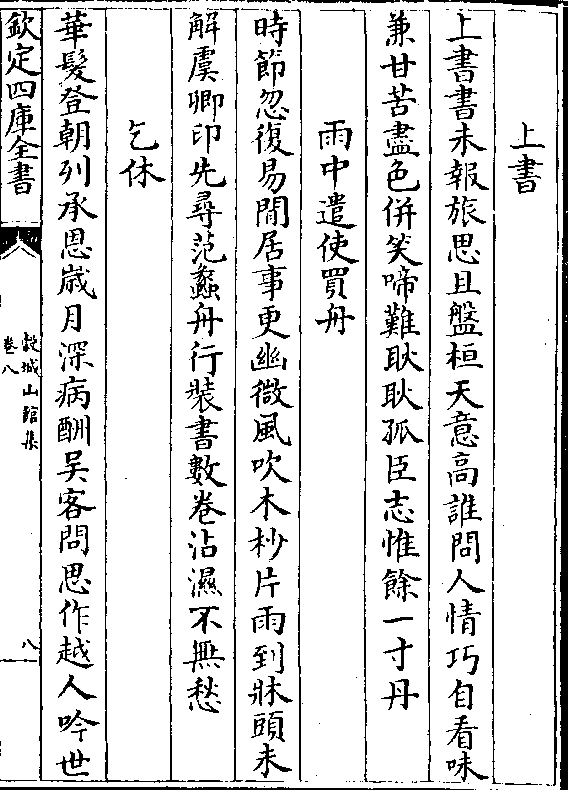 上書
上書書未報旅思且盤桓天意高誰問人情巧自看味
兼甘苦盡色併笑啼難耿耿孤臣志惟餘一寸丹
雨中遣使買舟
時節忽復易閒居事更幽微風吹木杪片雨到牀頭未
解虞卿印先尋范蠡舟行裝書數卷沾濕不無愁
乞休
華髮登朝列承恩歲月深病酬吳客問思作越人吟世
欽定四庫全書
穀城山館集
卷八
八